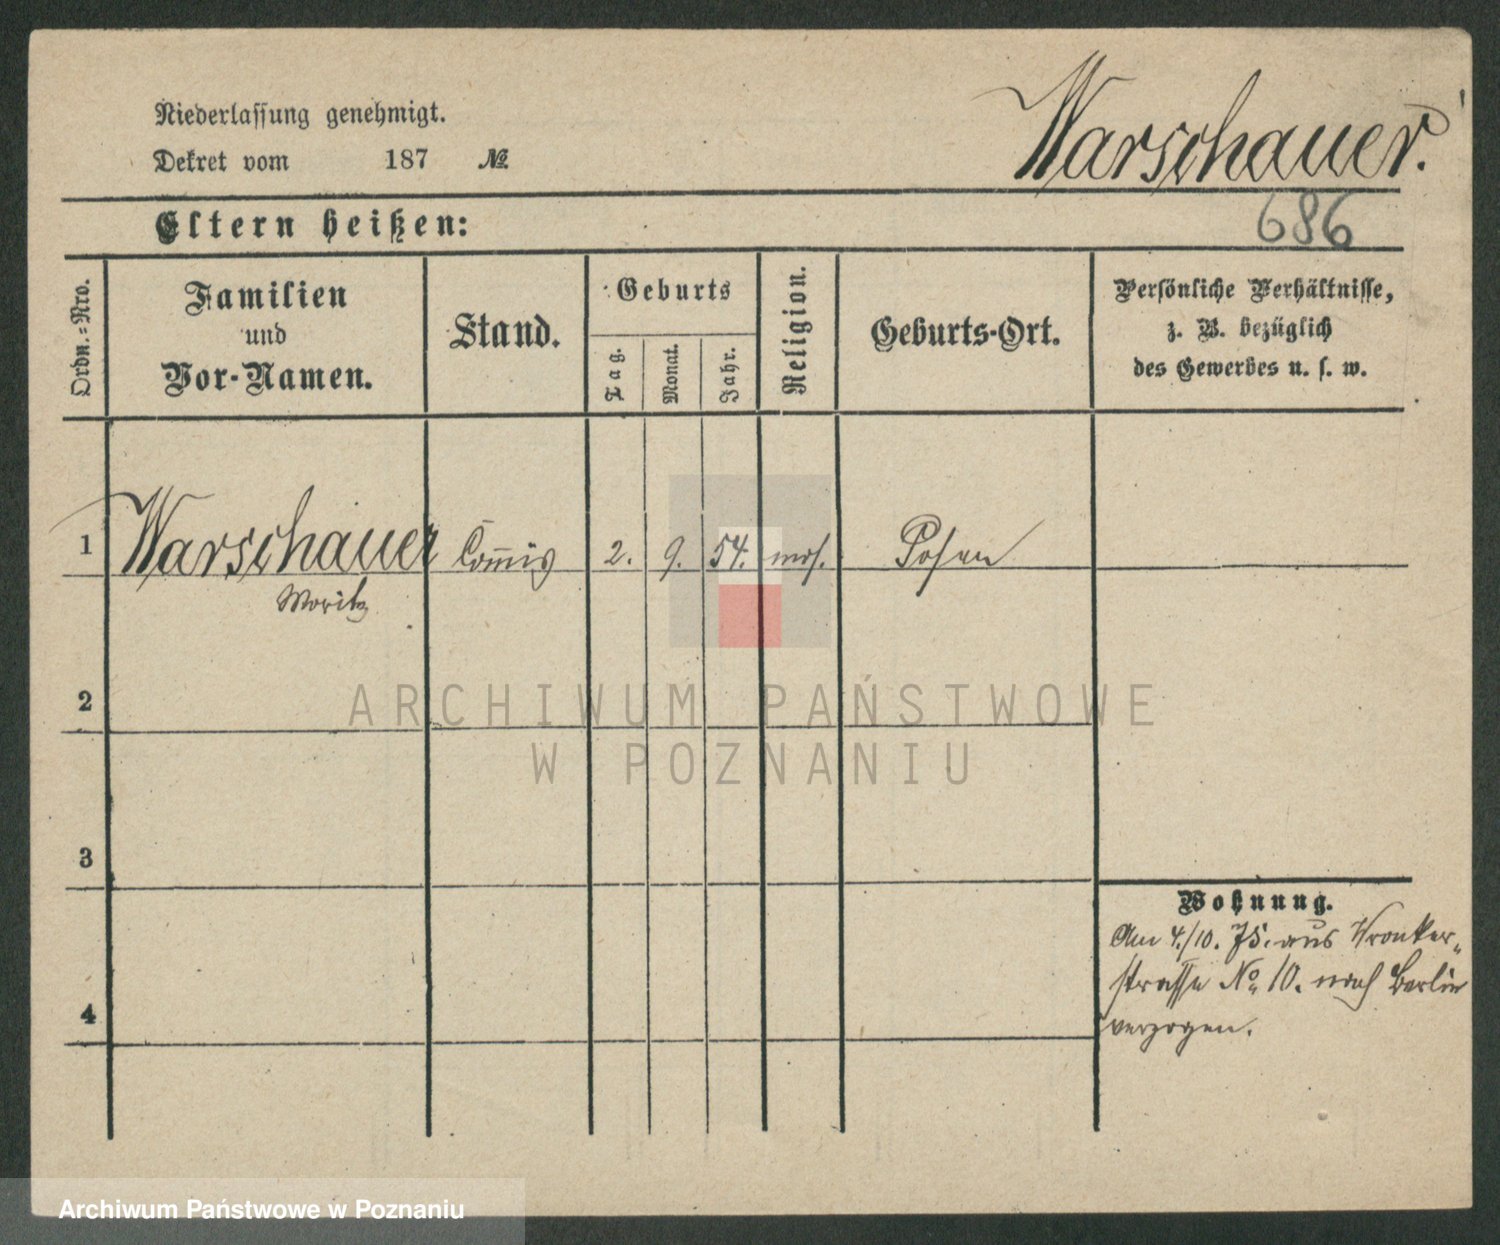 Niederlassung genehmigt.
Dekret vom 187 №
Warschauer.
686
Eltern heißen:
Ordn.-Nro.
Familien
und
Vor-Namen.
Stand.
Geburts
Tag.
Monat.
Jahr.
Religion.
Geburts-Ort.
Persönliche Verhältnisse,
z. B. bezüglich
des Gewerbes u. s. w.
1 Warschauer Com̅is 2. 9. 54. mos. Posen
Moritz
2
ARCHIWUM PAŃSTWOWE
W POZNANIU
3
Wohnung.
Am 4./10. 75. aus Wronker-
strasse No 10. nach Berlin
verzogen.
4
Archiwum Państwowe w Poznaniu